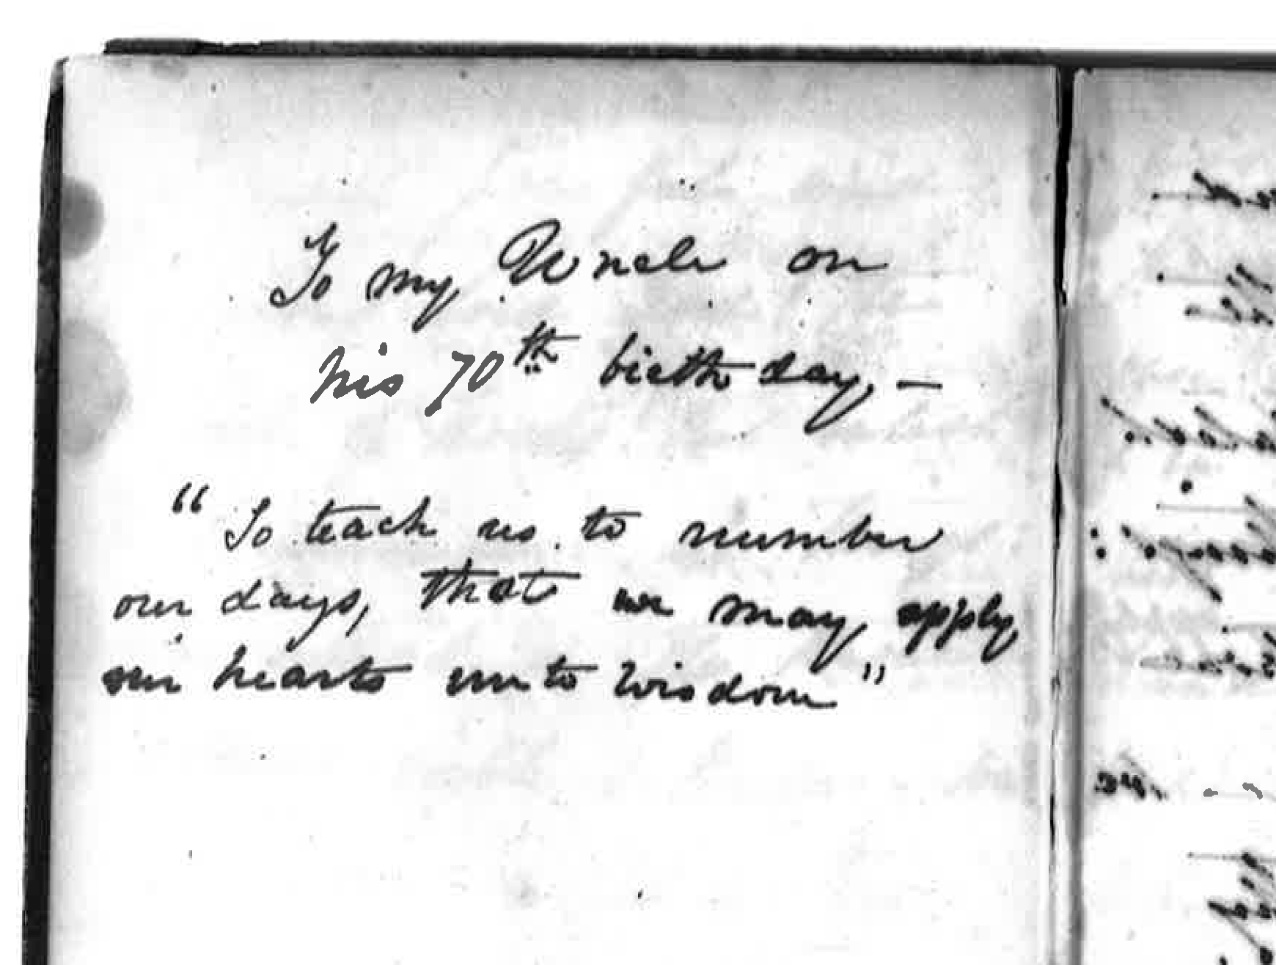 To my Uncle on
his 70th birthday, —
"So teach us to number
our days, that we may apply
our hearts unto wisdom"